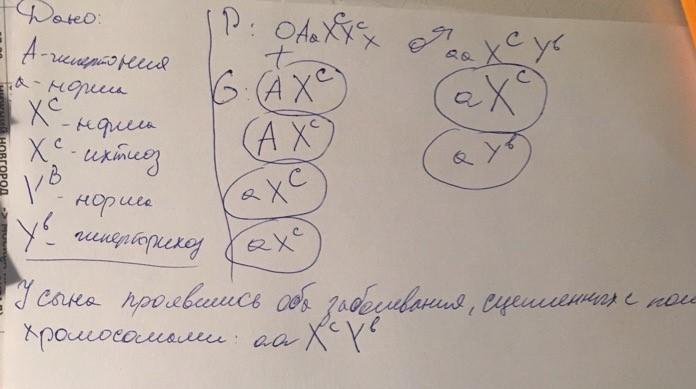 Дано:
А-гипертония
а-норма
X^C-норма
X^c-ихтиоз
Y^B-норма
Y^b-гипертрихоз
P: ♀AaX^CX^c x ♂ aa X^C Y^b
G: A X^C
A X^c
a X^C
a X^c
a X^C
a Y^b
У сына проявились оба заболевания, сцепленных с пол
хромосомами: aa X^c Y^b